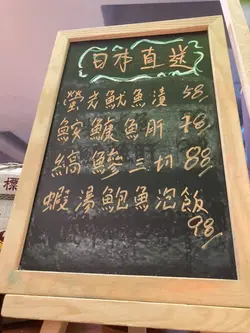 日本直送
螢光魷魚漬 58/
鮟鱇魚肝 78/
縞鰺三切 88/
蝦湯鮑魚泡飯
98/
標